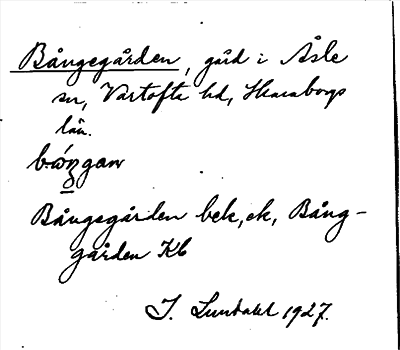 Bångegården, gård i Åsle
sn, Vartofta hd, Skaraborgs
län.
Bångegården bek, ek, Bång-
gården Kb
I. Lundahl 1927.